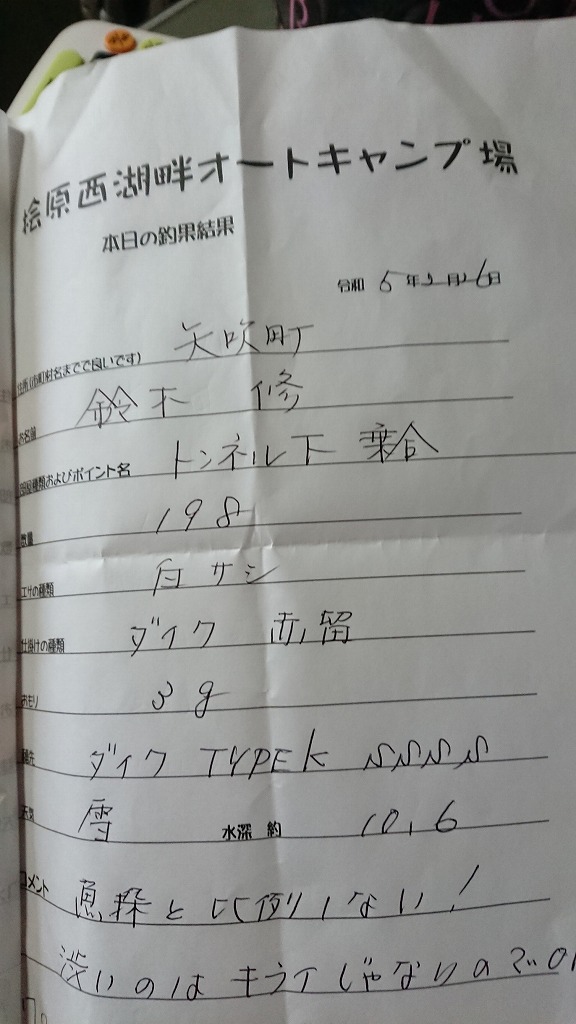 桧原西湖畔オートキャンプ場
本日の釣果結果
令和 5年2月26日
住所(市町村名までで良いです) 矢吹町
お名前 鈴木 修
および ポイント名 トンネル下 乗合
数量 198
エサの種類 白サシ
仕掛けの種類 ダイワ 赤留
おもり 3g
穂先 ダイワ TYPEK SSSS
天気 雪 水深 約 10,6
コメント 魚探と比例しない!
渋いのはキライじゃないので